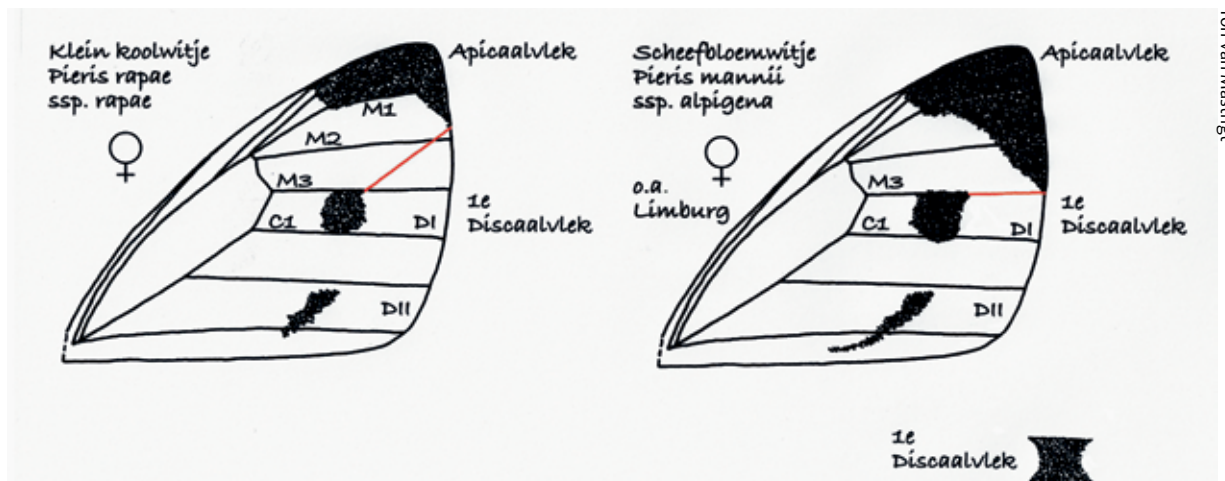 Klein koolwitje
Pieris rapae
ssp. rapae
Apicaalvlek
M1
M2
M3
C1
DI
1e
Discaalvlek
DII
Scheefbloemwitje
Pieris mannii
ssp. alpigena
Apicaalvlek
o.a.
Limburg
M3
C1
DI
1e
Discaalvlek
DII
1e
Discaalvlek